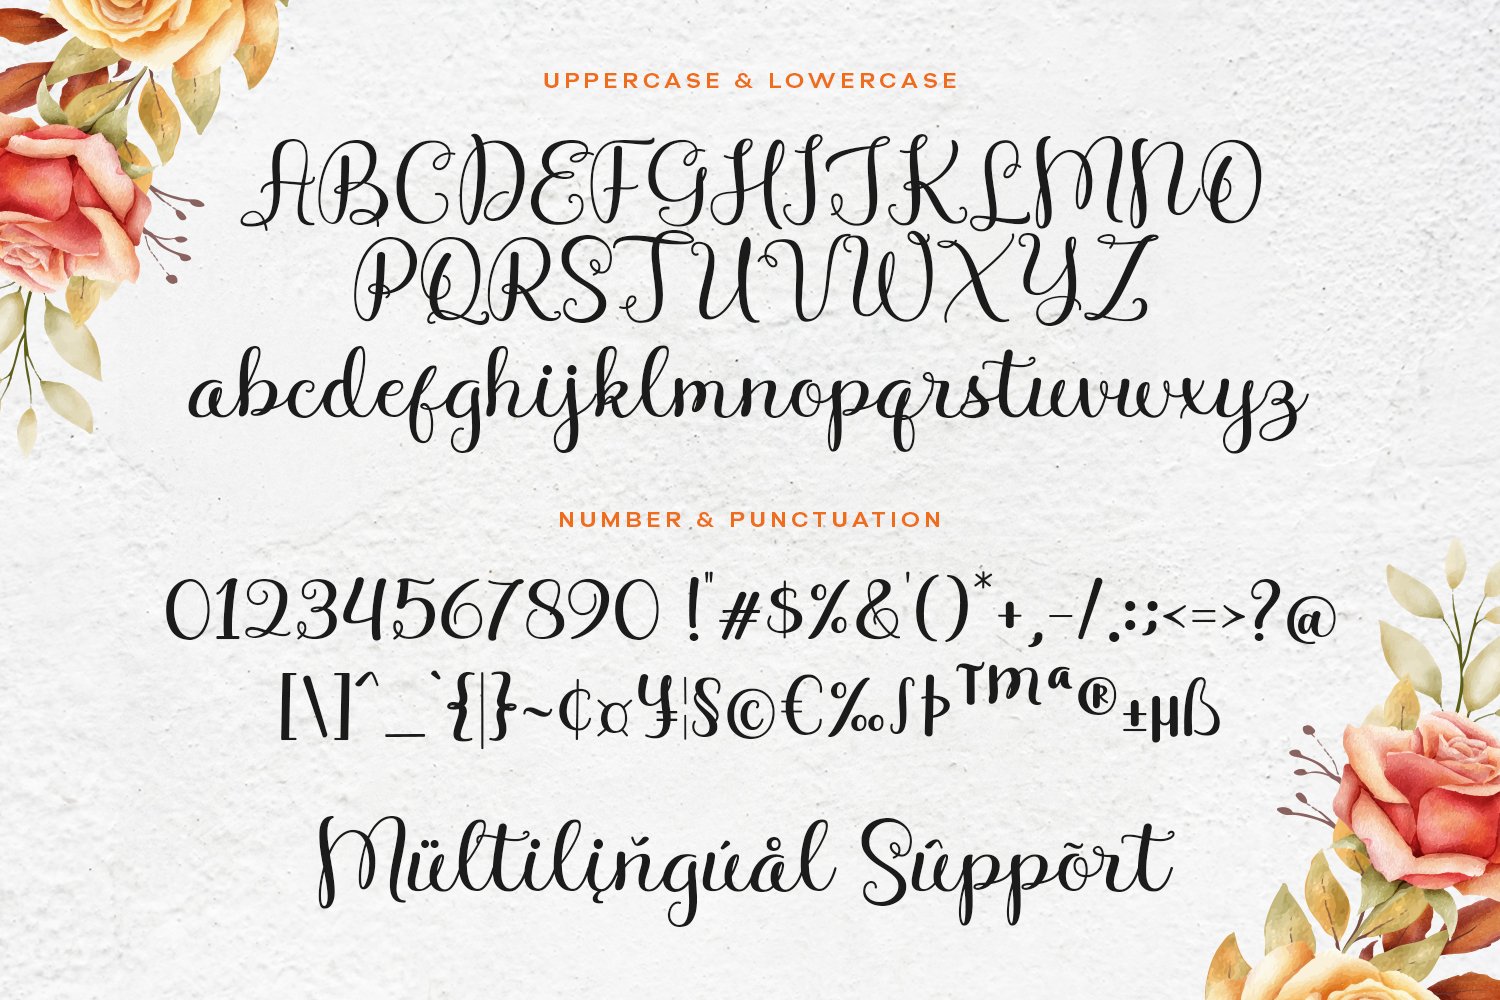 UPPERCASE & LOWERCASE
ABCDEFGHIJKLMNO
PQRSTUVWXYZ
abcdefghijklmnopqrstuvwxyz
NUMBER & PUNCTUATION
01234567890 !"#$%&'()*+,-/.:;<=>?@
[\]^_`{|}~¢¤¥¦§©€‰∫Þ™ª®±µß
Mültilįņgúål Sûppõrt